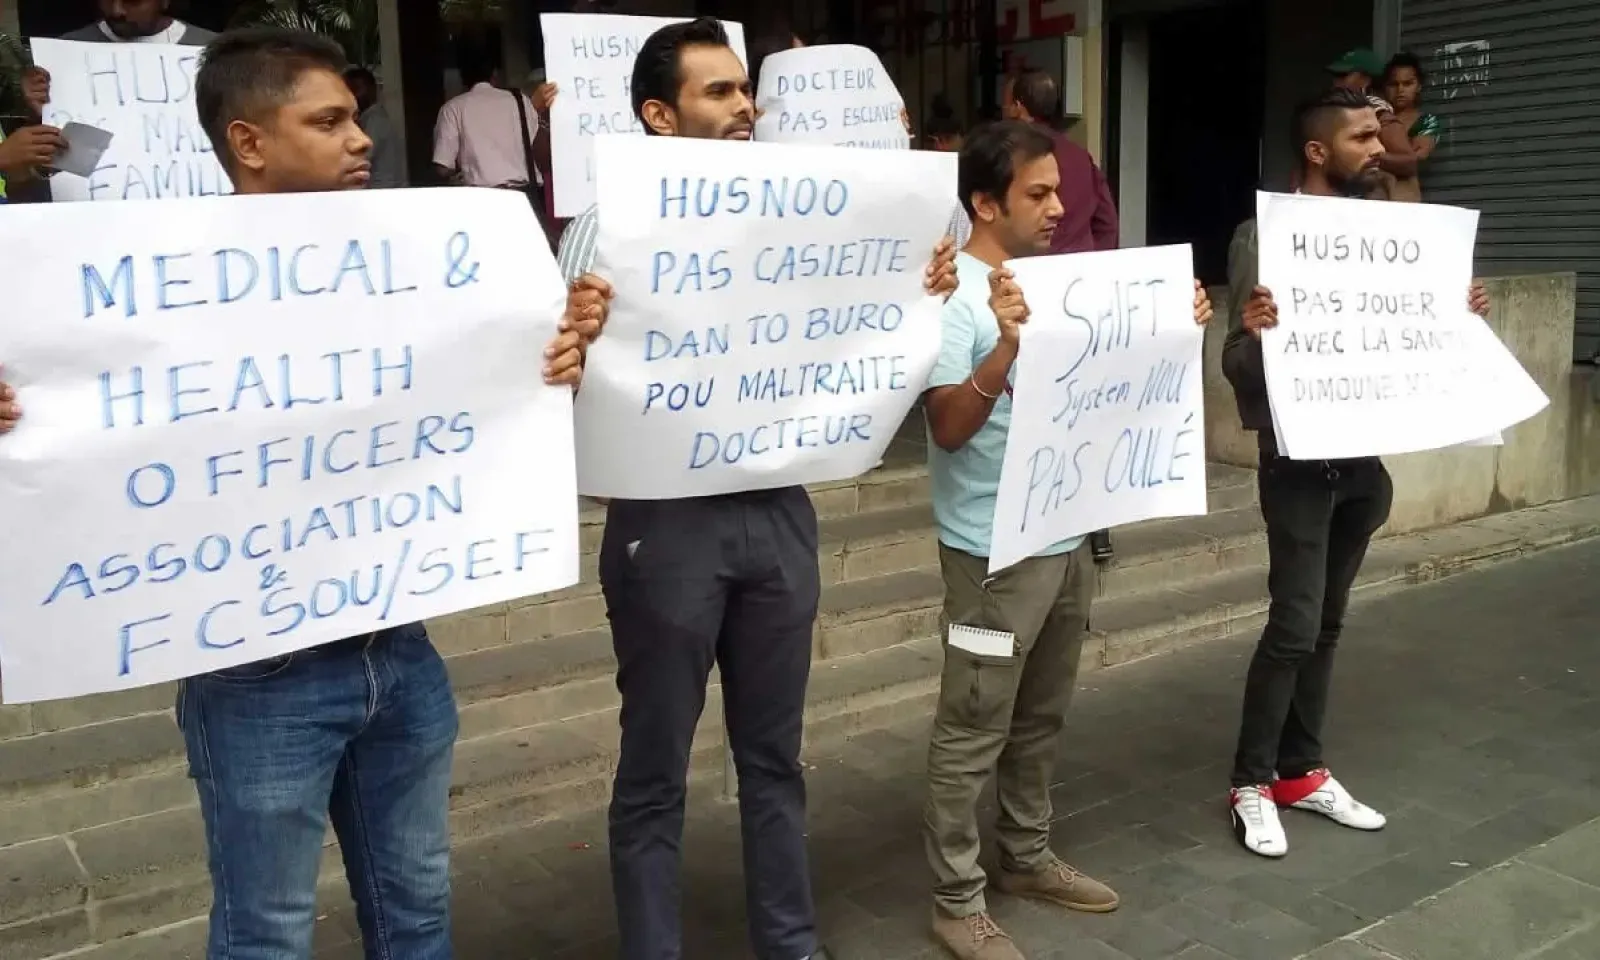 HUS
FAMILL
HUSN
PE
DOCTEUR
PAS ESCLAVE
MEDICAL &
HEALTH
OFFICERS
ASSOCIATION
&
FCSOU/SEF
HUSNOO
PAS CASIETTE
DAN TO BURO
POU MALTRAITE
DOCTEUR
SHIFT
System NOU
PAS OULÉ
HUSNOO
PAS JOUER
AVEC LA SANT
DIMOUNE